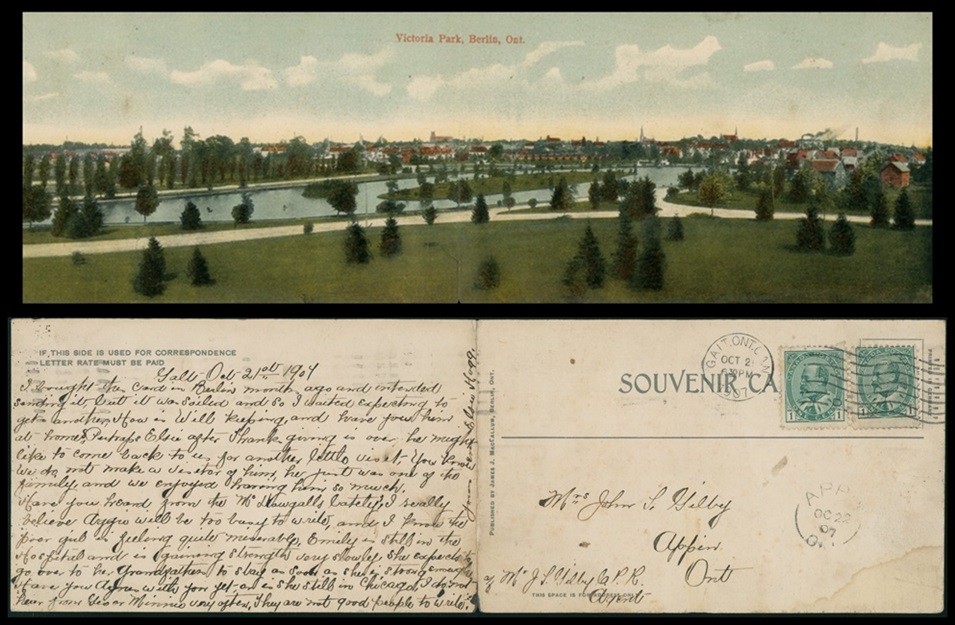 Victoria Park, Berlin, Ont.
IF THIS SIDE IS USED FOR CORRESPONDENCE
LETTER RATE MUST BE PAID
Galt Oct 21st 1907
I bought the card in Berlin month ago and intended
sending it but it was soiled and so I waited expecting to
get another. How is Will keeping and have you him
at home? Perhaps Elsie after Thanksgiving is over he might
like to come back to us for another little visit. You know
we do not make a visitor of him, he just was one of the
family and we enjoyed having him so much.
Have you heard from the McDougalls lately? I really
believe will be too busy to write, and I know the
poor girl is feeling quite miserable. Emily is still in the
Hospital and is gaining strength very slowly she expects to
go over to be Grandfathers to stay as soon as she is strong enough
Have you Agnes with you yet or is she still in Chicago I do not
hear from or Minnie very often, They are not good people to write.
PUBLISHED BY JAMES J. MACCALLUM, BERLIN, ONT.
SOUVENIR CA
GALT, ONT.
OCT 2
PM
1
1
1
1
Mrs John S. Gilby
Appin
Ont
c/o Mr J S Gilby C.P.R.
Agent
THIS SPACE IS FOR ADDRESS ONLY
APP
OC 22
07